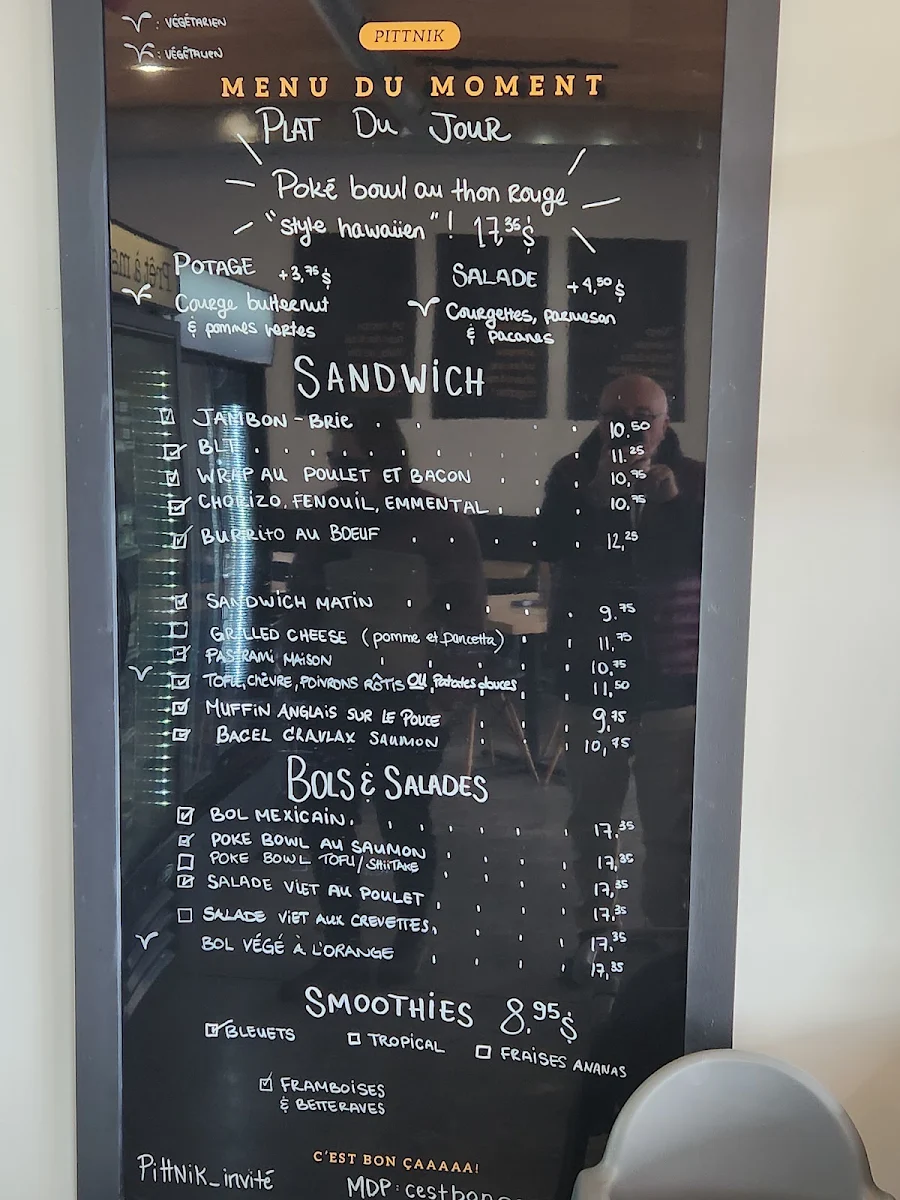 : VÉGÉTARIEN
: VÉGÉTALIEN
PITTNIK
MENU DU MOMENT
PLAT DU JOUR
Poké bowl au thon Rouge
"style hawaiien" ! 17,35$
POTAGE +3,75$
Courge butternut
& pommes vertes
SALADE +4,50$
Courgettes, parmesan
& pacanes
SANDWICH
JAMBON - BRIE 10.50
BLT 11.25
WRAP AU POULET ET BACON 10,75
CHORIZO, FENOUIL, EMMENTAL 10.75
BURRITO AU BOEUF 12,25
SANDWICH MATIN 9.75
GRILLED CHEESE (pomme et pancetta) 11,75
PASTRAMI MAISON 10.75
TOFU, CHÈVRE, POIVRONS RÔTIS OU Patates douces 11,50
MUFFIN ANGLAIS SUR LE POUCE 9,75
BAGEL GRAVLAX SAUMON 10,75
BOLS & SALADES
BOL MEXICAIN 17.35
POKE BOWL AU SAUMON 17,35
POKE BOWL TOFU/SHIITAKE 17,35
SALADE VIET AU POULET 17.35
SALADE VIET AUX CREVETTES 17.35
BOL VÉGÉ À L'ORANGE 17,35
SMOOTHIES 8.95$
BLEUETS
TROPICAL
FRAISES ANANAS
FRAMBOISES
& BETTERAVES
C'EST BON ÇAAAAA!
PittNik_invité
MDP: cestbon